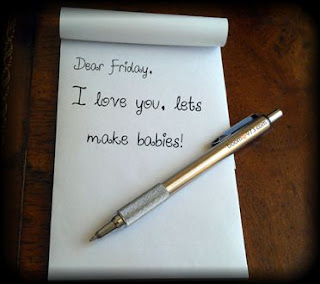 Dear Friday,
I love you, lets
make babies!